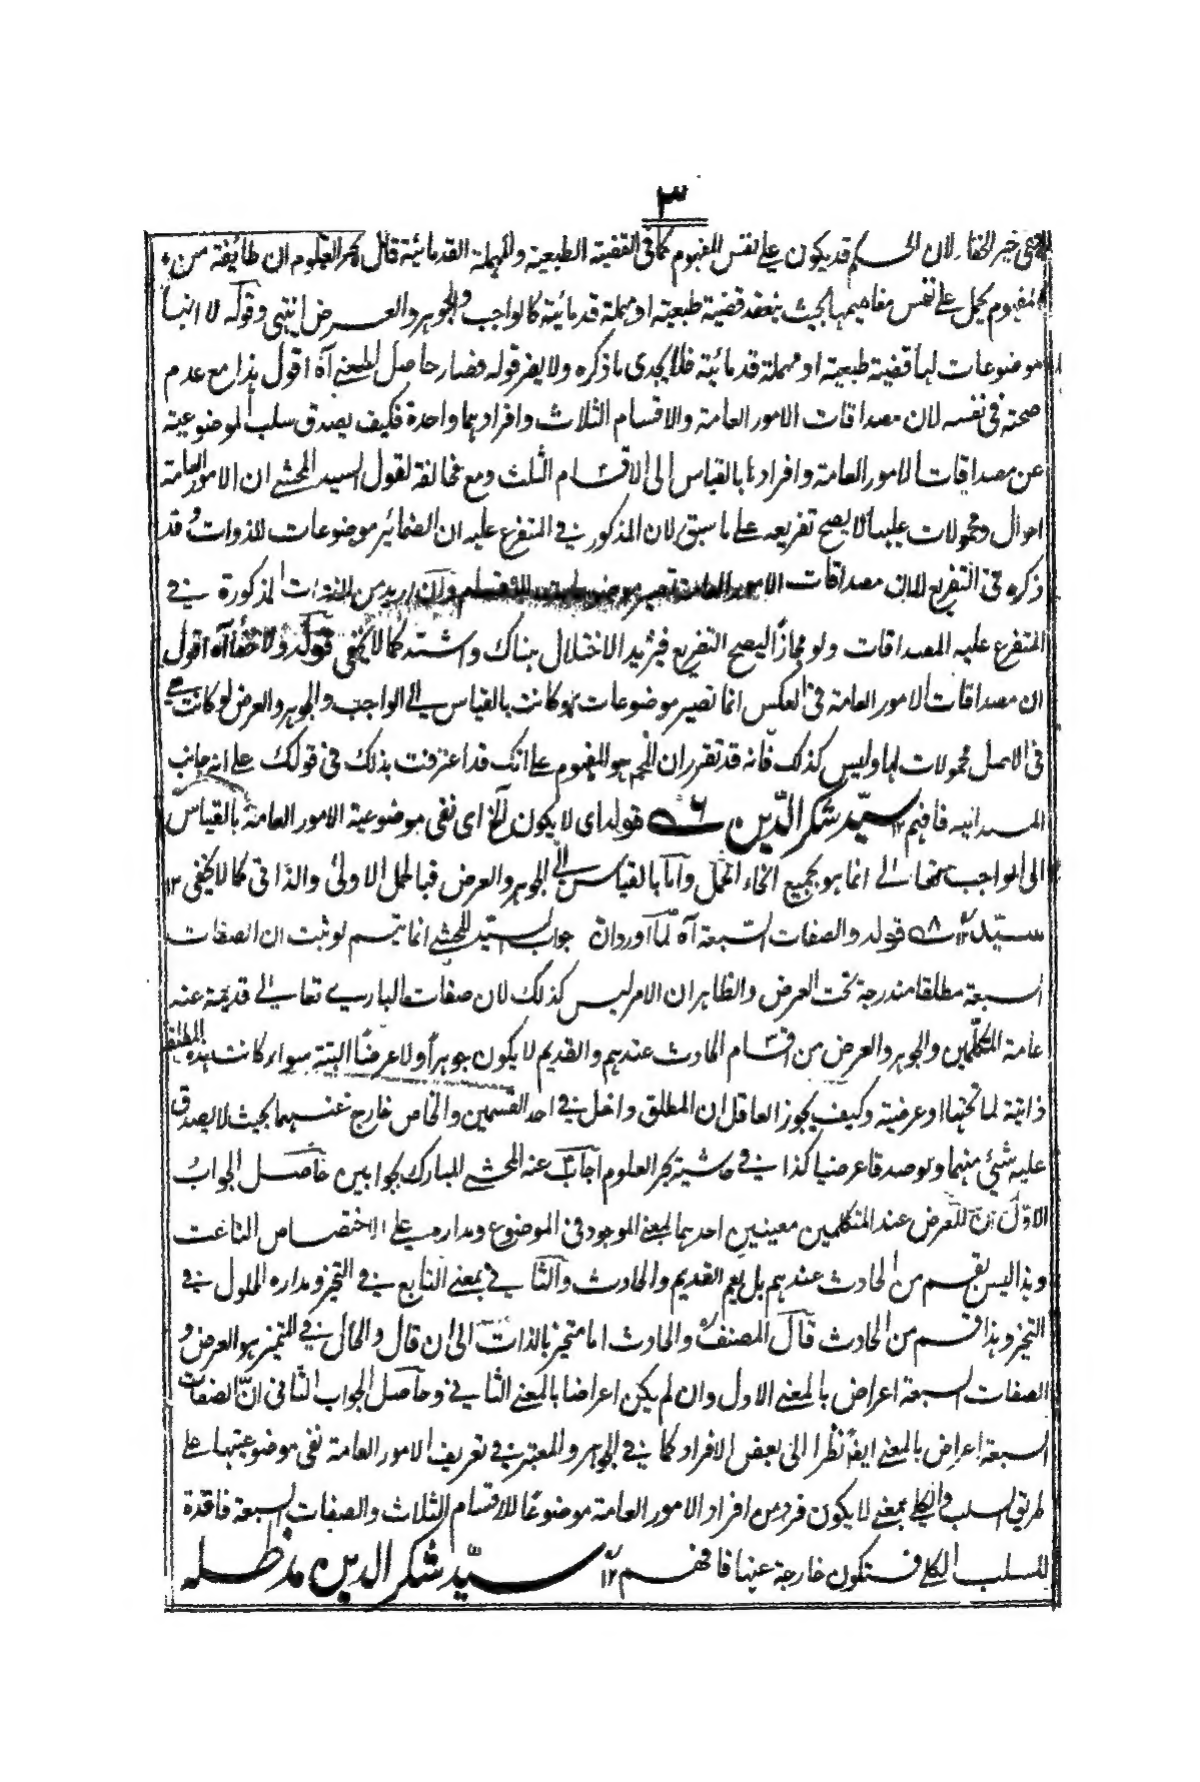 ٣
في حيز الخفاء لان الحكم قد يكون على نفس المفهوم كما في القضية الطبعية والمهملة القدمائية قال بحر العلوم ان طائفة من
مفهوم يحمل على نفس مفاهيمها بحيث ينعقد قضية طبعية او مهملة قدمائية كالواجب والجوهر والعرض انتهى وقوله لا انها
موضوعات لها قضية طبعية او مهملة قدمائية فلا يجدى ما ذكره ولا يضر قوله فصار حاصل المعنے آه اقول هذا مع عدم
صحته فى نفسه لان مصداقات الامور العامة والاقسام الثلاث وافرادهما واحدة فكيف يصدق سلب الموضوعية
عن مصداقات الامور العامة وافرادها بالقياس الى الاقسام الثلث ومع مخالفة لقول السيد المحشے ان الامور العامة
احوال ومحمولات عليها لا يصح تفريعه على ما سبق لان المذكور فے المتفرع عليه ان الضمائر موضوعات للذوات وقد
ذكره فى التفريع لان مصداقات الامور العامة تصير موضوعات للاقسام وان اريد من الذوات المذكورة فے
المتفرع عليه المصداقات ولو مجازاً ليصح التفريع فيزيد الاختلال هناك واشد كما لا يخفى قوله ولا خفاء آه اقول
ان مصداقات الامور العامة فى العكس انما تصير موضوعات لو كانت بالقياس الے الواجب والجوهر والعرض لو كانت هے
فى الاصل محمولات لها وليس كذلك فانه قد تقرر ان المحمول هو المفهوم على انك قد اعترفت بذلك فى قولك على انه جانب
المسند اليه فافهم ١٢ سيّد شكر الدّين قوله اى لا يكون آلخ اى نفى موضوعية الامور العامة بالقياس
الى الواجب تعالے انما هو بجميع انحاء الحمل وأما بالقياس الى الجوهر والعرض فبالحمل الاولى والذاتى كما لا يخفى ١٢
سيّد قوله والصفات السّبعة آه لما اورد ان جواب السيّد المحشے انما يتم لو ثبت ان الصفات
السبعة مطلقا مندرجة تحت العرض والظاهر ان الامر ليس كذلك لان صفات البارے تعالے قديمة عند
عامة المتكلّمين والجوهر والعرض من اقسام الحادث عندهم والقديم لا يكون جوهراً ولا عرضاً البتة سواء كانت هذه المطلقة
ذاتية لما تحتها او عرضية وكيف يجوز العاقل ان المطلق داخل فے احد القسمين والخاص خارج عنهما بحيث لا يصدق
عليه شئ منهما ولو صدقا عرضيا كذا فے حاشية بحر العلوم اجاب عنه المحشے المبارك بجوابين حاصل الجواب
الاوّل انّ للعرض عند المتكلمين معنيين احدهما بمعنے الموجود فى الموضوع ومداره على الاختصاص الناعت
وهذا ليس بقسم من الحادث عندهم بل يعم القديم والحادث والثانے بمعنے التابع فے التحيز ومداره الحلول فے
التحيز وهذا قسم من الحادث قال المصنف والحادث اما متحيز بالذات الى ان قال والحال فے المتحيز هو العرض و
الصفات السبعة اعراض بالمعنے الاول وان لم يكن اعراضا بالمعنے الثانے وحاصل الجواب الثانى انّ الصفات
السبعة اعراض بالمعنے ايضاً نظرا الى بعض الافراد كما فے الجوهر والمعتبر فے تعريف الامور العامة نفى موضوعيتها على
طريق السلب الكلے بمعنے لا يكون فرد من افراد الامور العامة موضوعًا للاقسام الثلاث والصفات السبعة فاقدة
للسلب الكلے فتكون خارجة عنها فافهم ١٢ سيّد شكر الدين مد ظله